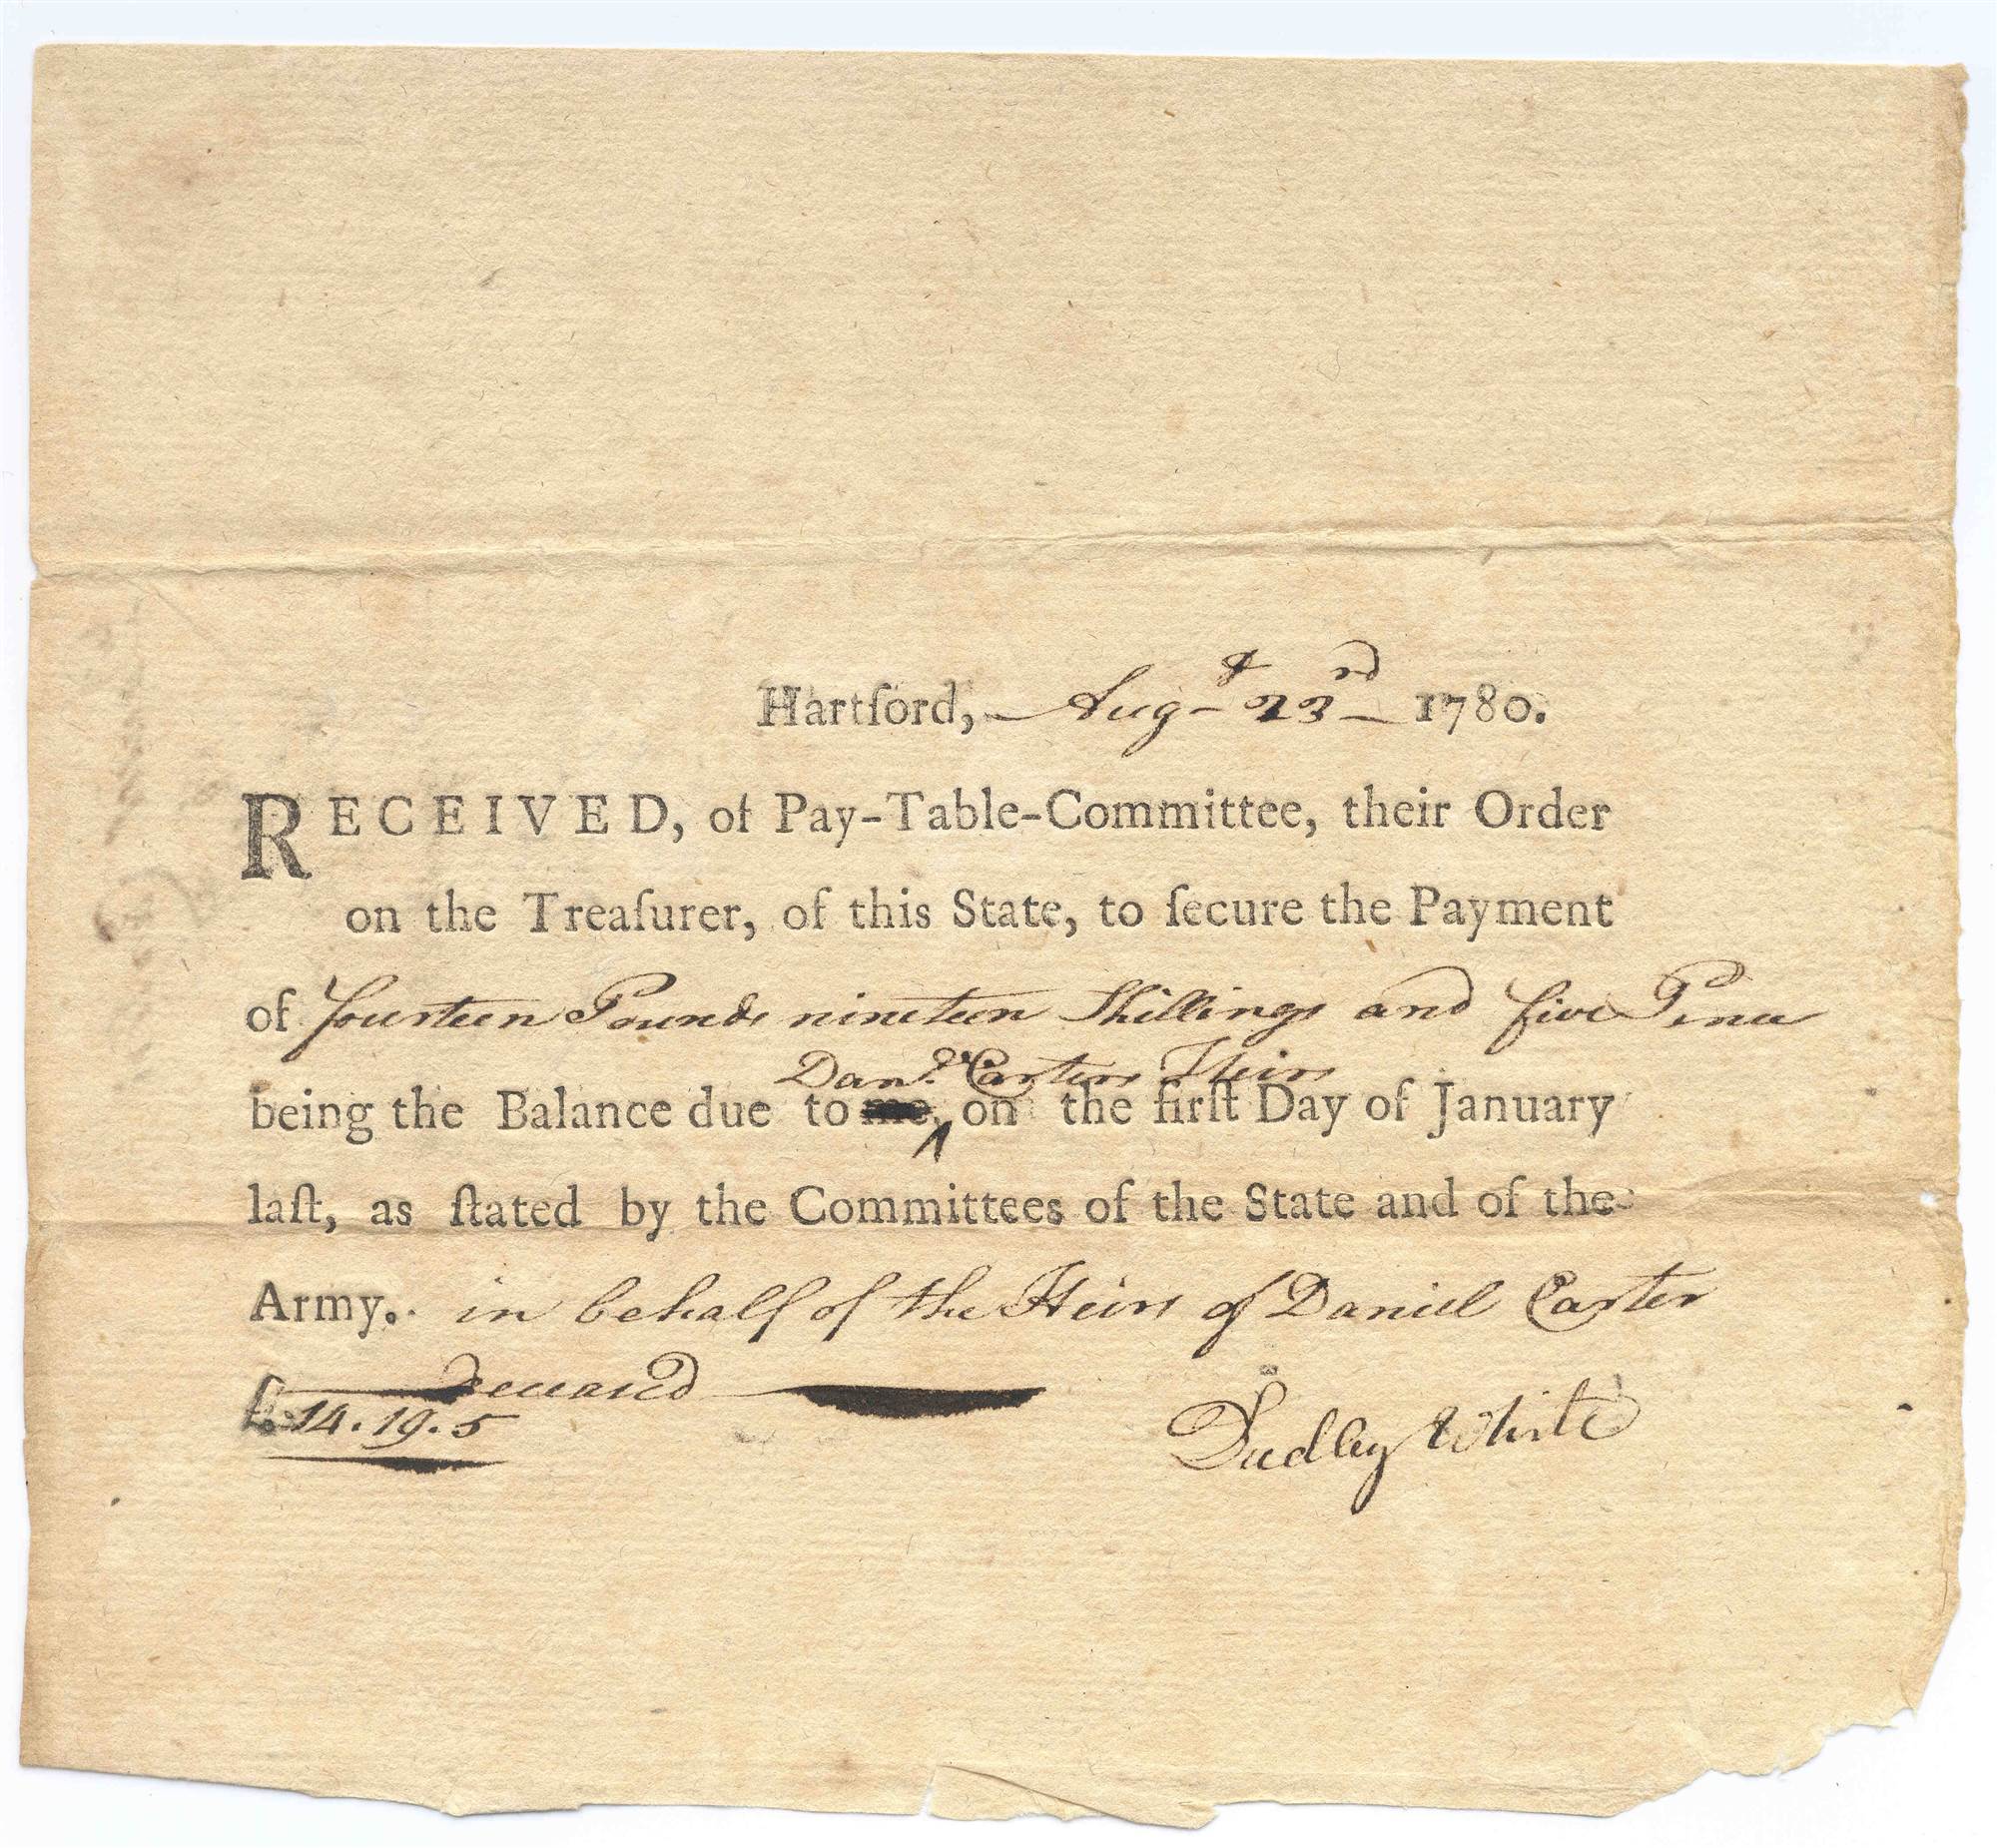 Hartford, Augt 23rd 1780.
RECEIVED, of Pay-Table-Committee, their Order
on the Treaſurer, of this State, to ſecure the Payment
of fourteen Pounds nineteen Shillings and five Pence
Danl Carters Heirs
being the Balance due to me, on the firſt Day of January
laſt, as ſtated by the Committees of the State and of the
Army. in behalf of the Heirs of Daniel Carter
Deceased
£ 14.19.5
Dudley White